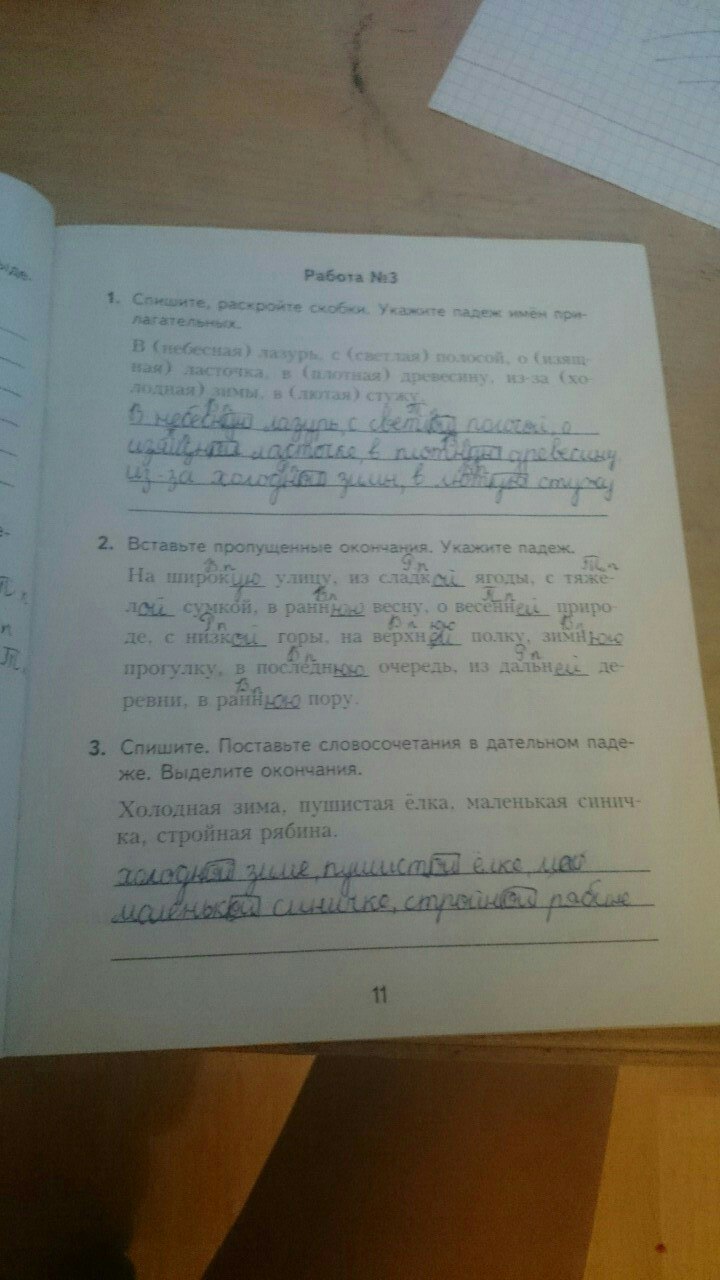 ыде.
е-
п
Работа №3
1. Спишите, раскройте скобки. Укажите падеж имён при-
лагательных.
В (небесная) лазурь, с (светлая) полосой, о (изящ-
ная) ласточка, в (плотная) древесину, из-за (хо-
лодная) зимы, в (лютая) стужу.
В небесную лазурь, с светлой полосой, о
изящной ласточке, в плотную древесину
из-за холодной зимы, в лютую стужу
2. Вставьте пропущенные окончания. Укажите падеж.
Вп Рп Тп
На широкую улицу, из сладкой ягоды, с тяже-
Вп Пп
лой сумкой, в раннюю весну, о весенней приро-
Рп Вп юю Вп
де, с низкой горы, на верхней полку, зимнюю
Вп Рп
прогулку, в последнюю очередь, из дальней де-
Вп
ревни, в раннюю пору.
3. Спишите. Поставьте словосочетания в дательном паде-
же. Выделите окончания.
Холодная зима, пушистая ёлка, маленькая синич-
ка, стройная рябина.
холодной зиме, пушистой ёлке,
маленькой синичке, стройной рябине
11